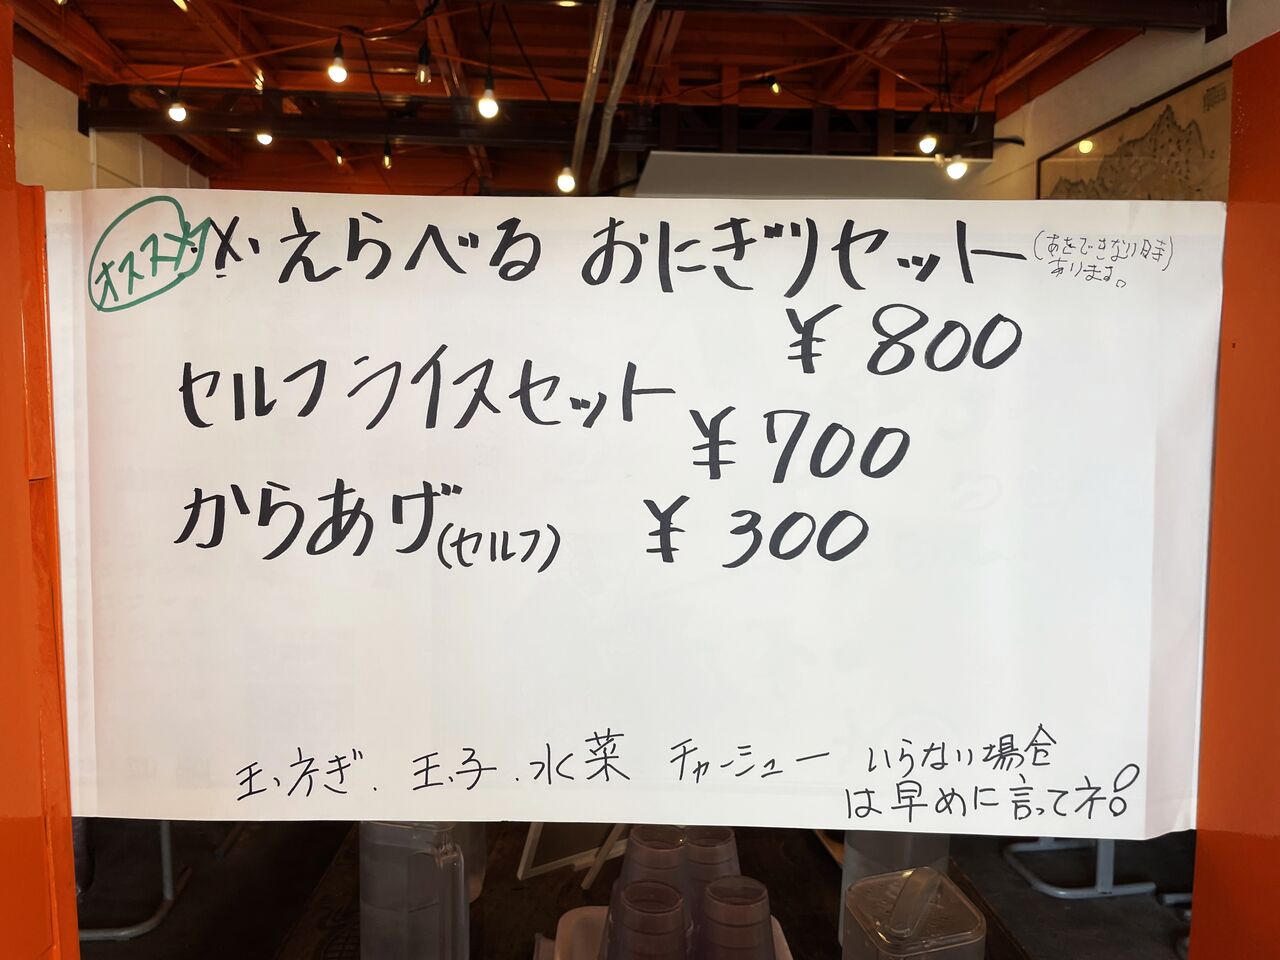 オススメ ※ えらべる おにぎりセット (あをできない時
あります。)
¥800
セルフライスセット
¥700
からあげ(セルフ) ¥300
玉ネぎ. 玉子. 水菜 チャーシュー いらない場合
は早めに言ってネ!